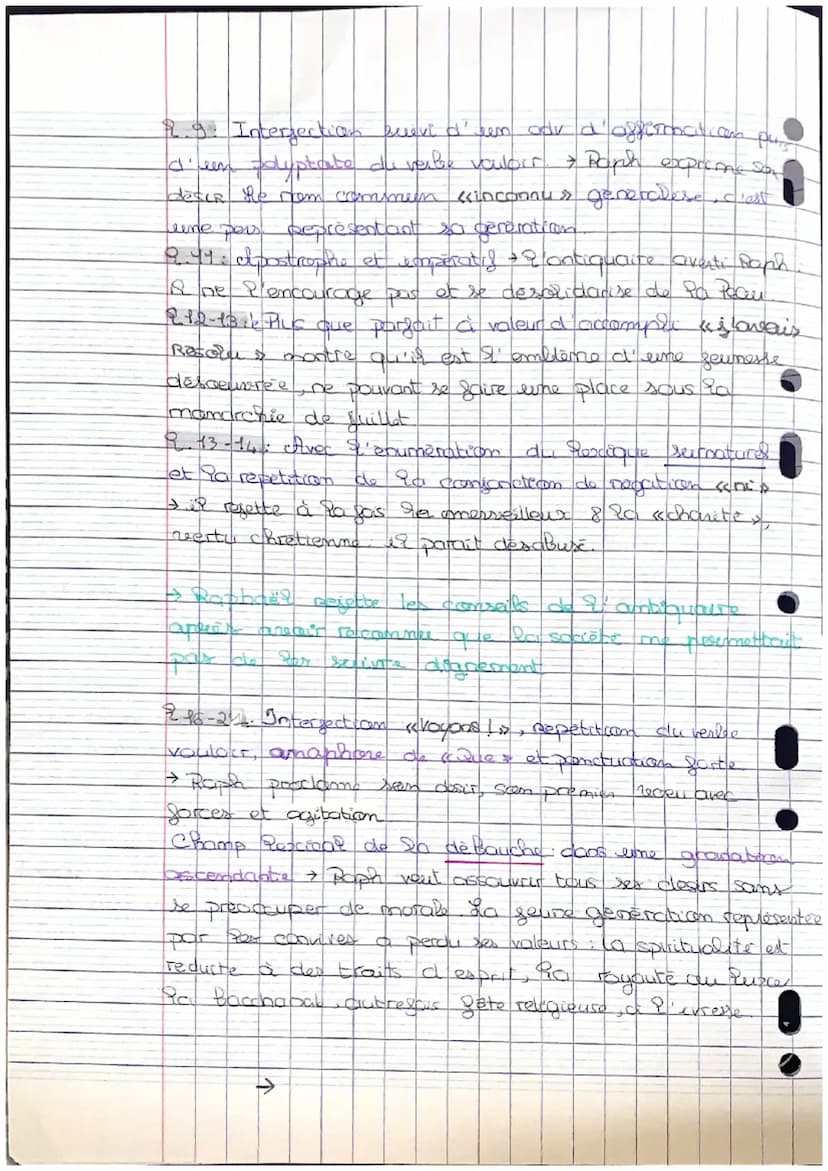 l.9: Interjection suivi d'un adv d'affirmation puis
d'un polyptote du verbe vouloir. → Raph exprime son
désir. Le nom commun «inconnu» généralise, c'est
une pers représentant sa génération.
l.11: Apostrophe et impératif → l'antiquaire averti Raph.
Il ne l'encourage pas et se désolidarise de la Peau.
l.12-13: Plus que parfait à valeur d'accompli «j'avais
Résolu» montre qu'il est l'emblème d'une jeunesse
désoeuvrée, ne pouvant se faire une place sous la
monarchie de Juillet.
l.13-14: Avec l'énumération du lexique surnaturel
et la repetition de la conjonction de négation «ni»
→ il rejette à la fois le merveilleux & la «charité»,
vertu chrétienne. il parait désabusé.
→ Raphaël rejette les conseils de l'antiquaire
après avoir reconnu que la société ne permettrait
pas de les suivre dignement
l.16-21. Interjection «Voyons!», répétition du verbe
vouloir, anaphore de «Que» et ponctuation forte
→ Raph proclame son désir, son premier voeu avec
forces et agitation
Champ lexical de la débauche dans une gradation
ascendante → Raph veut assouvir tous ses désirs sans
se préoccuper de morale. La jeune génération représentée
par les convives a perdu ses valeurs : la spiritualité est
réduite à des traits d'esprit, la royauté au luxe,
la Bacchanal, autrefois fête religieuse, à l'ivresse.
→